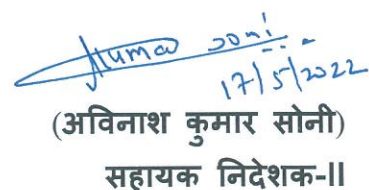 Kumar soni
17/5/2022
(अविनाश कुमार सोनी)
सहायक निदेशक-II